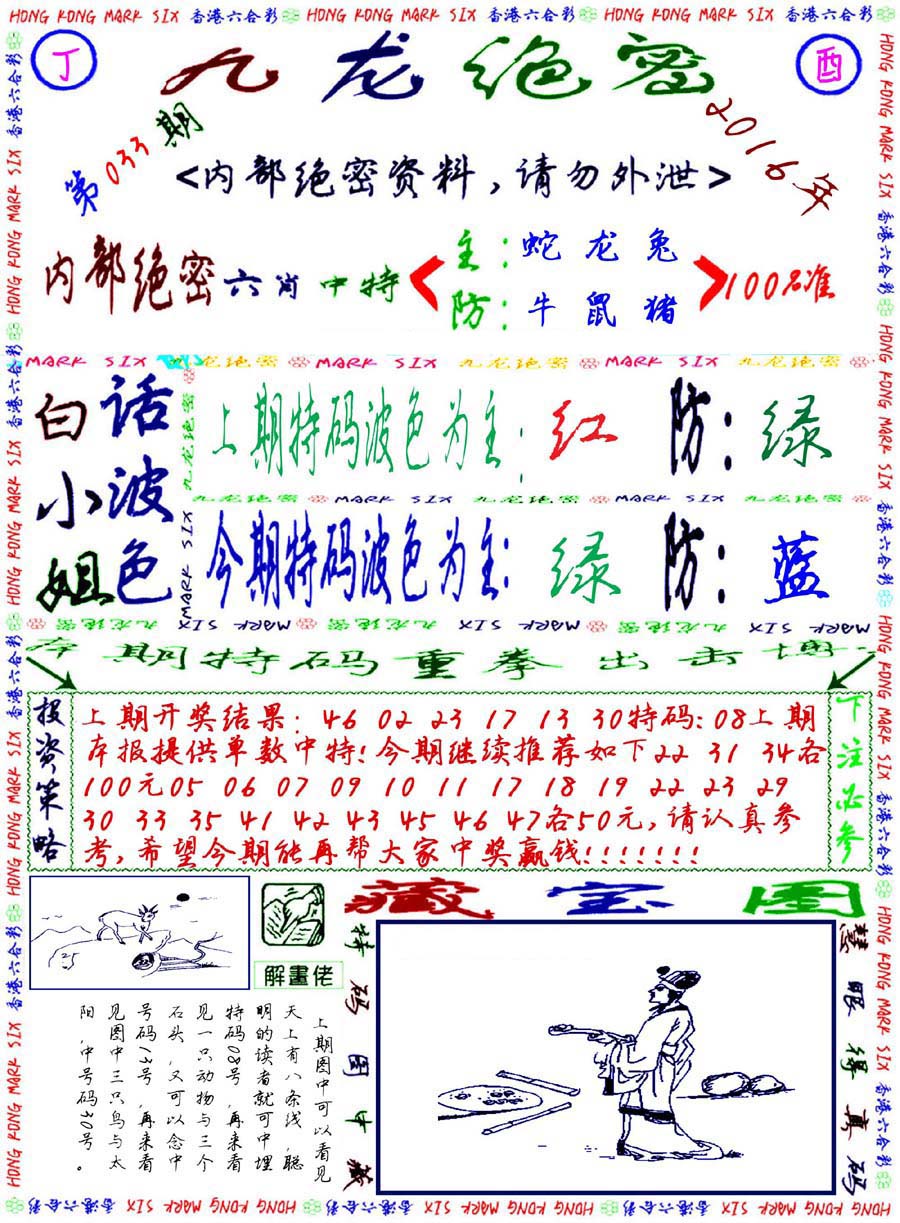 HONG KONG MARK SIX 香港六合彩 HONG KONG MARK SIX 香港六合彩 HONG KONG MARK SIX 香港六合彩
丁
九龙绝密
酉
第033期
2016年
<内部绝密资料,请勿外泄>
内部绝密六肖中特
主:蛇龙兔
防:牛鼠猪
100%准
MARK SIX 九龙绝密 MARK SIX 九龙绝密 MARK SIX 九龙绝密
白话
小波
姐色
上期特码波色为主:红 防:绿
九龙绝密 MARK SIX 九龙绝密 MARK SIX 九龙绝密
今期特码波色为主:绿 防:蓝
本期特码重拳出击博一
投资策略
上期开奖结果:46 02 23 17 13 30特码:08上期
本报提供单数中特!今期继续推荐如下22 31 34各
100元05 06 07 09 10 11 17 18 19 22 23 29
30 33 35 41 42 43 45 46 47各50元,请认真参
考,希望今期能再帮大家中奖赢钱!!!!!!!
下注必参
藏宝图
解畫佬
特码图中藏
慧眼得真码
上期图中可以看见
天上有八条线,聪
明的读者就可中埋
特码08号,再来看
见一只动物与三个
石头,又可以念中
号码13号,再来看
见图中三只鸟与太
阳,中号码30号。